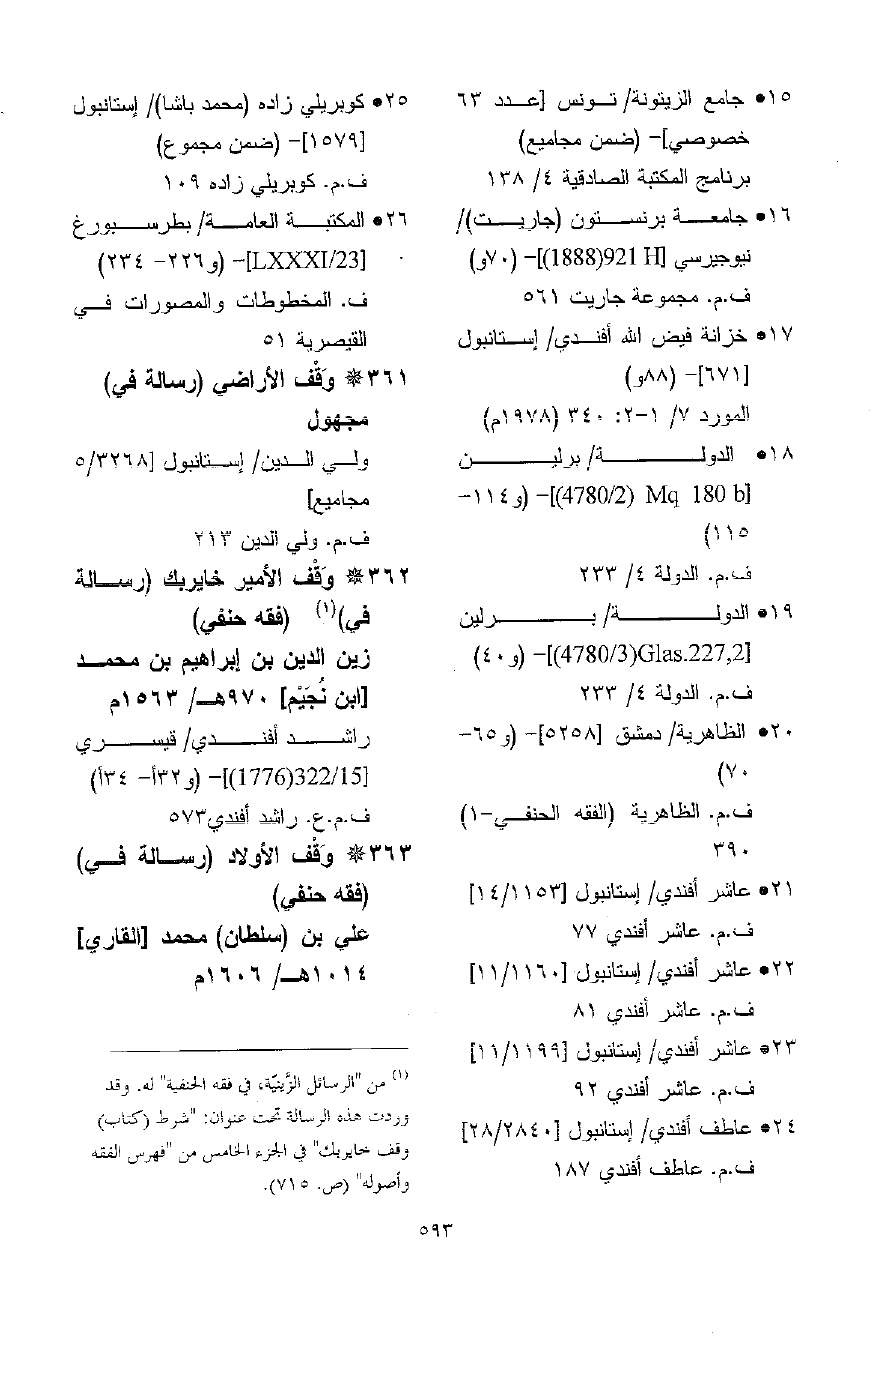 ١٥• جامع الزيتونة/ تونس [عدد ٦٣
خصوصي]- (ضمن مجاميع)
برنامج المكتبة الصادقية ٤/ ١٣٨
١٦• جامعة برنستون (جاريت)/
نيوجيرسي [921 H(1888)]- (٧٠و)
ف.م. مجموعة جاريت ٥٦١
١٧• خزانة فيض الله أفندي/ إستانبول
[٦٧١]- (٨٨و)
المورد ٧/ ١-٢: ٣٤٠ (١٩٧٨م)
١٨• الدولة/ برلين
[Mq 180 b (4780/2)]- (و١١٤-
١١٥)
ف.م. الدولة ٤/ ٢٣٣
١٩• الدولة/ برلين
[Glas.227,2(4780/3)]- (و٤٠)
ف.م. الدولة ٤/ ٢٣٣
٢٠• الظاهرية/ دمشق [٥٢٥٨]- (و٦٥-
٧٠)
ف.م. الظاهرية (الفقه الحنفي-١)
٣٩٠
٢١• عاشر أفندي/ إستانبول [١٤/١١٥٣]
ف.م. عاشر أفندي ٧٧
٢٢• عاشر أفندي/ إستانبول [١١/١١٦٠]
ف.م. عاشر أفندي ٨١
٢٣• عاشر أفندي/ إستانبول [١١/١١٩٩]
ف.م. عاشر أفندي ٩٢
٢٤• عاطف أفندي/ إستانبول [٢٨/٢٨٤٠]
ف.م. عاطف أفندي ١٨٧
٢٥• كوبريلي زاده (محمد باشا)/ إستانبول
[١٥٧٩]- (ضمن مجموع)
ف.م. كوبريلي زاده ١٠٩
٢٦• المكتبة العامة/ بطرسبورغ
[LXXXI/23]- (و٢٢٦- ٢٣٤)
ف. المخطوطات والمصورات في
القيصرية ٥١
٣٦١ ❋ وَقْف الأراضي (رسالة في)
مجهول
ولي الدين/ إستانبول [٥/٣٢٦٨
مجاميع]
ف.م. ولي الدين ٢١٣
٣٦٢ ❋ وَقْف الأمير خايربك (رسالة
في)(١) (فقه حنفي)
زين الدين بن إبراهيم بن محمد
[ابن نُجَيْم] ٩٧٠هـ/ ١٥٦٣م
راشد أفندي/ قيسري
[322/15(1776)]- (و٣٢أ- ٣٤أ)
ف.م.ع. راشد أفندي٥٧٣
٣٦٣ ❋ وَقْف الأولاد (رسالة في)
(فقه حنفي)
علي بن (سلطان) محمد [القاري]
١٠١٤هـ/ ١٦٠٦م
(١) من "الرسائل الزَّينِيَّة، في فقه الحنفية" له. وقد
وردت هذه الرسالة تحت عنوان: "شرط (كتاب)
وقف خايربك" في الجزء الخامس من "فهرس الفقه
وأصوله" (ص. ٧١٥).
٥٩٣